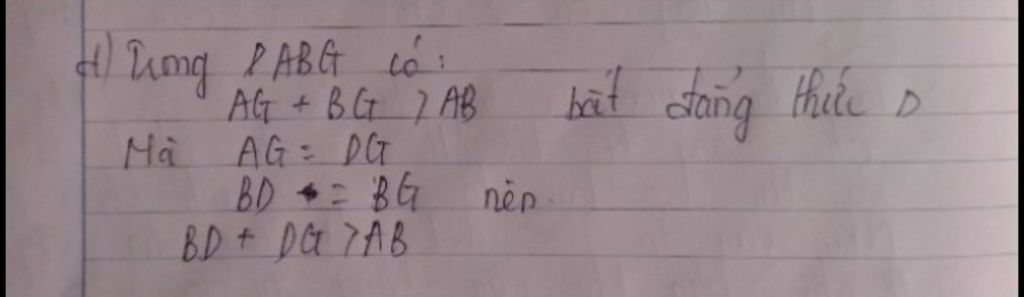 d) Trong △ABG có:
AG + BG > AB bất đẳng thức △
Mà AG = DG
BD = BG nên
BD + DG > AB